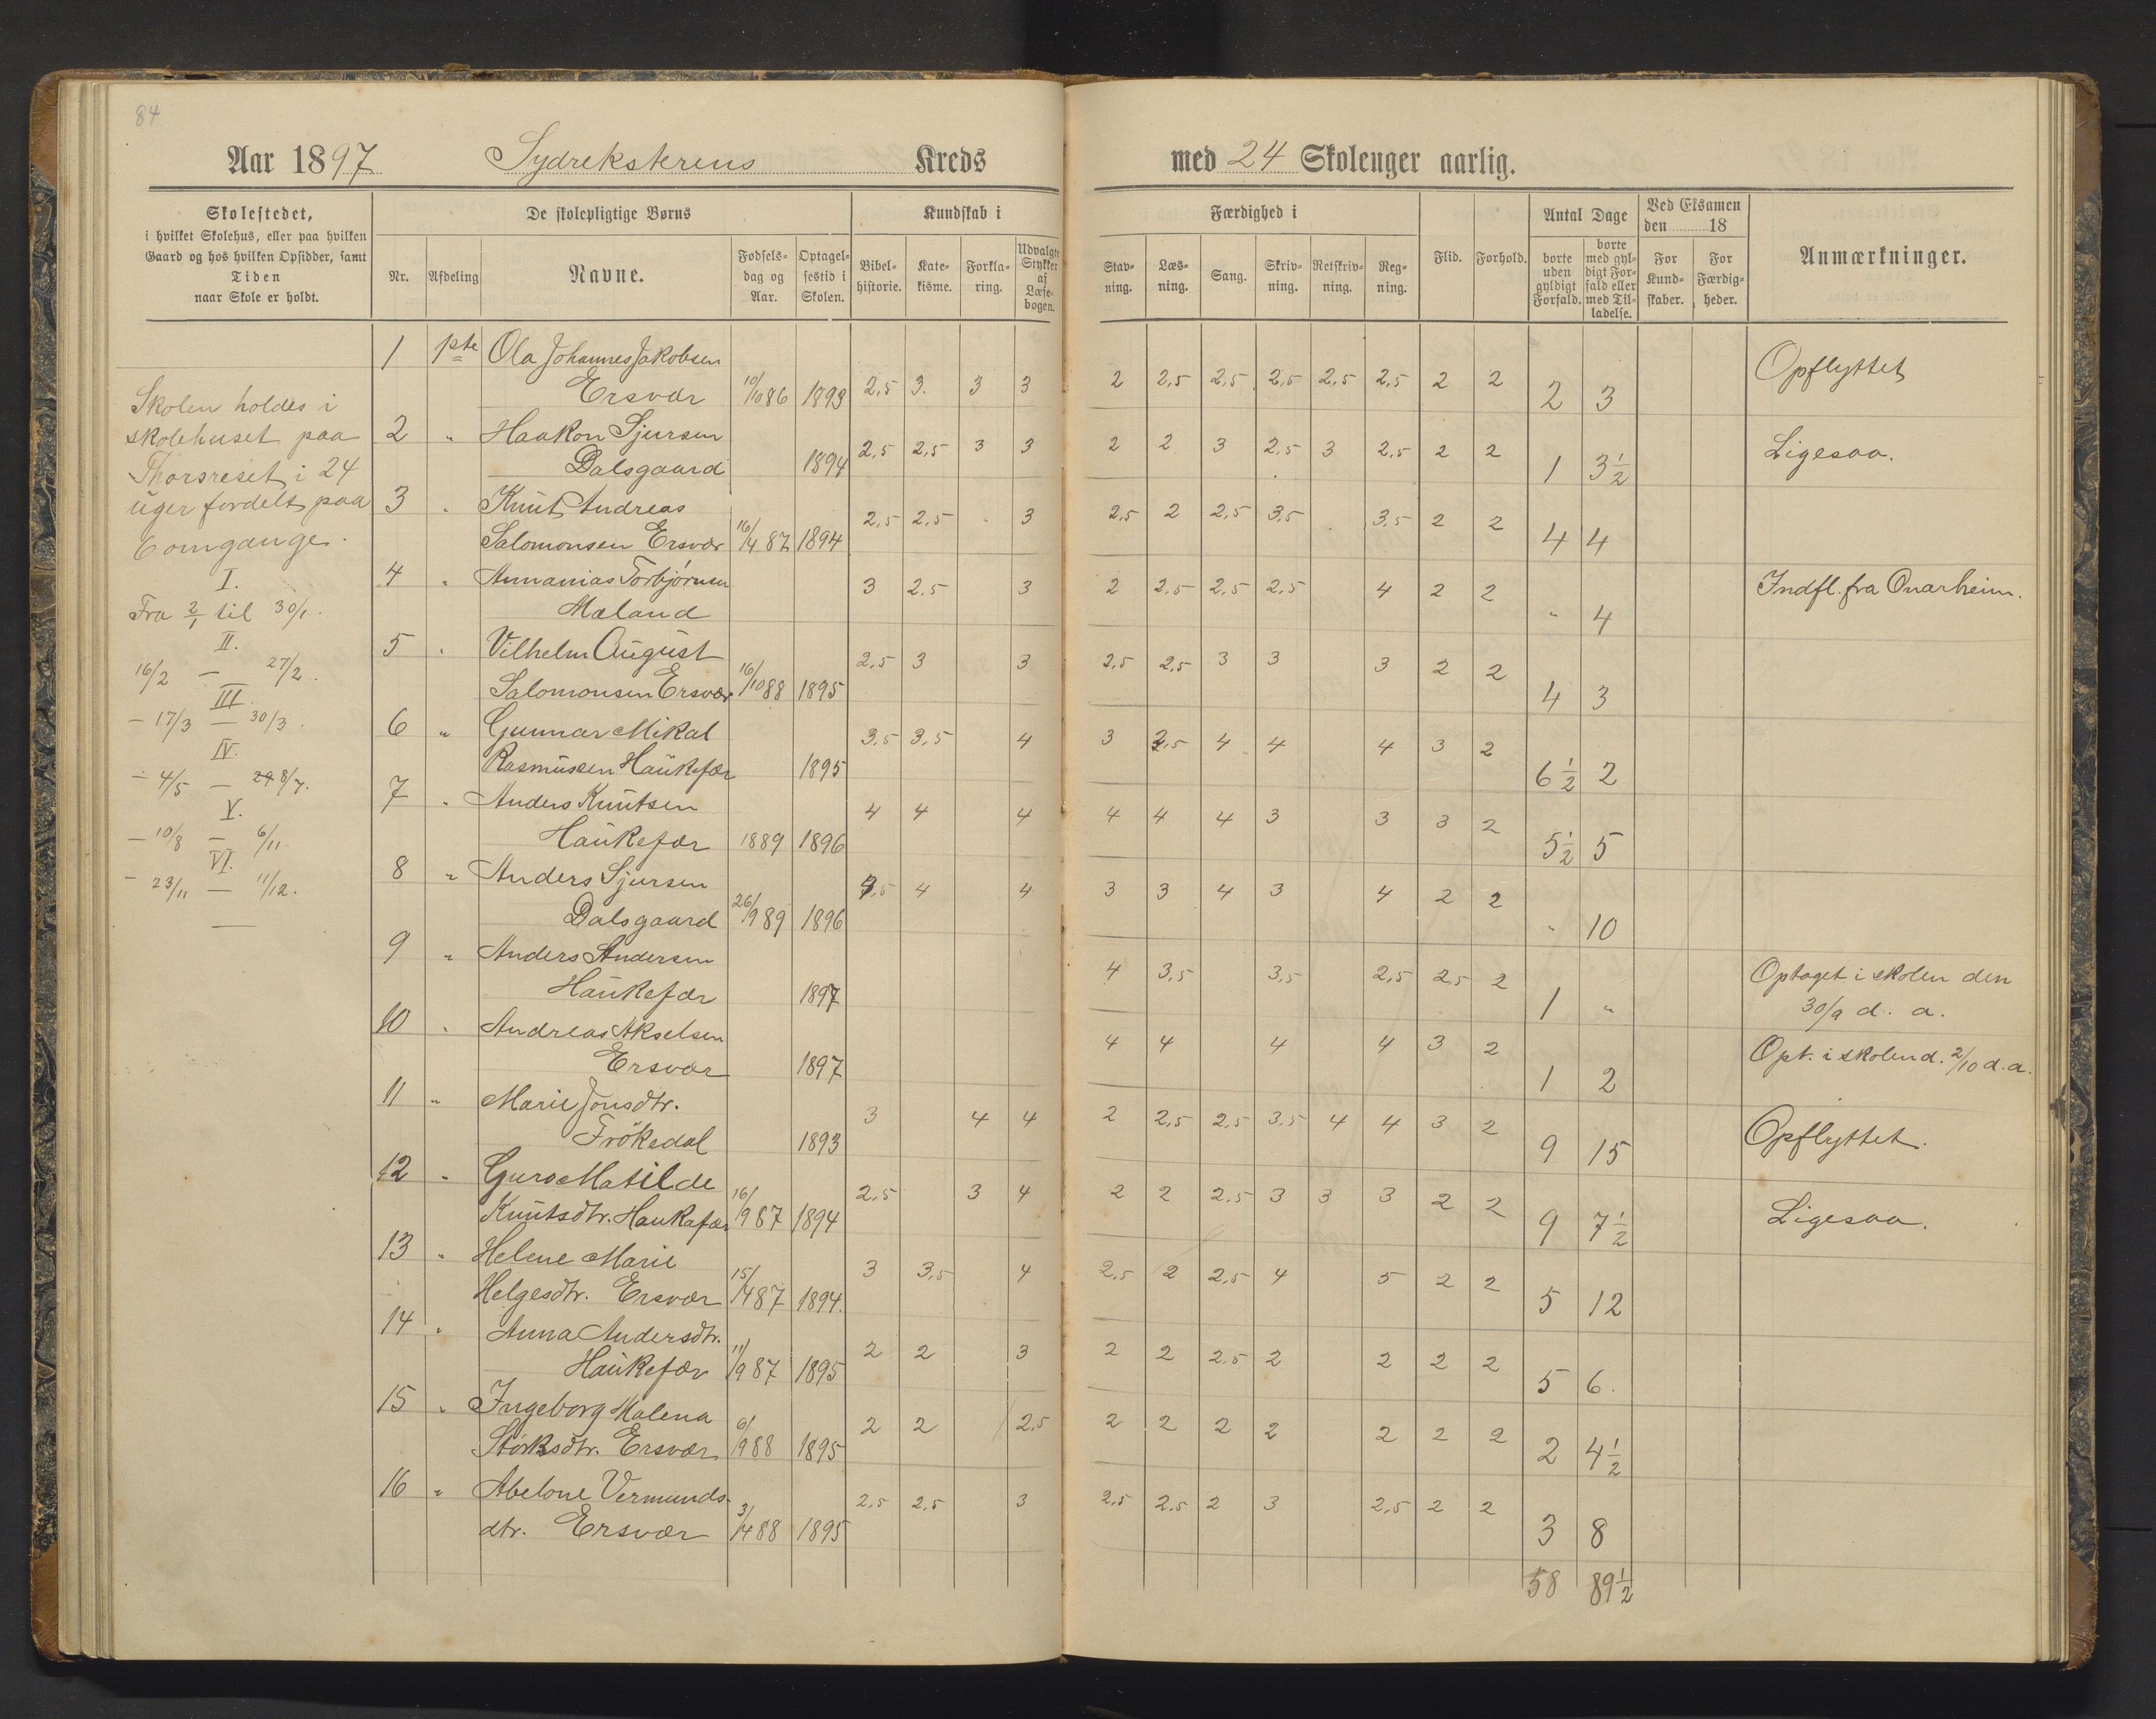 84
Aar 1897 Sydreksterens Kreds med 24 Skoleuger aarlig.
Skolestedet, i hvilket Skolehus, eller paa hvilken Gaard og hos hvilken Opsidder, samt Tiden naar Skole er holdt.
De skolepligtige Børns
Nr. Afdeling Navne. Fødsels-dag og Aar. Optagel-sestid i Skolen.
Kundskab i
Bibel-historie. Kate-kisme. Forkla-ring. Udvalgte Stykker af Læse-bogen.
Færdighed i
Stav-ning. Læs-ning. Sang. Skriv-ning. Retskriv-ning. Reg-ning.
Flid. Forhold.
Antal Dage
borte uden gyldigt Forfald. borte med gyl-digt For-fald eller med Til-ladelse.
Ved Eksamen den 18
For Kund-skaber. For Færdig-heder.
Anmærkninger.
Skolen holdes i
skolehuset paa
Thorsreset i 24
uger fordelt paa
6 omgange.
I.
Fra 2/1 til 30/1.
II.
16/2 — 27/2.
III.
— 17/3 — 30/3.
IV.
— 4/5 — 8/7.
V.
— 10/8 — 6/11
VI.
— 23/11 — 11/12.
1 1ste Ola Johannes Jakobsen
Ersvær 10/10 86 1893 2,5 3. 3 3 2 2,5 2,5 2,5 2,5 2,5 2 2 2 3 Opflyttet
2 " Haakon Sjursen
Dalsgaard 1894 2,5 2,5 3 3 2 2 3 2,5 3 2,5 2 2 1 3½ Ligesaa.
3 " Knut Andreas
Salomonsen Ersvær 16/4 87 1894 2,5 2,5 " 3 2,5 2 2,5 3,5 . 3,5 2 2 4 4
4 " Annanias Torbjørnsen
Mæland 3 2,5 3 2 2,5 2,5 2,5 4 2 2 " 4 Indfl. fra Onarheim.
5 " Vilhelm August
Salomonsen Ersvær 16/10 88 1895 2,5 3 3 2,5 2,5 3 3 3 2 2 4 3
6 " Gunnar Mikal
Rasmussen Haukefær 1895 3,5 3,5 4 3 2,5 4 4 4 3 2 6½ 2
7 " Anders Knutsen
Haukefær 1889 1896 4 4 4 4 4 4 3 3 3 2 5½ 5
8 " Anders Sjursen
Dalsgaard 26/9 89 1896 3,5 4 4 3 3 4 3 4 2 2 " 10
9 " Anders Andersen
Haukefær 1897 4 3,5 3,5 2,5 2,5 2 1 " Optaget i skolen den
30/9 d. a.
10 " Andreas Akselsen
Ersvær 1897 4 4 4 4 3 2 1 2 Opt. i skolen d. 2/10 d. a.
11 " Marie Jonsdtr.
Frökedal 1893 3 4 4 2 2,5 2,5 3,5 4 4 3 2 9 15 Opflyttet.
12 " Guro Matilde
Knutsdtr. Haukefær 16/9 87 1894 2,5 3 4 2 2 2,5 3 3 3 2 2 9 7½ Ligesaa.
13 " Helene Marie
Helgesdtr. Ersvær 15/4 87 1894. 3 3,5 4 2,5 2 2,5 4 5 2 2 5 12
14 " Anna Andersdtr.
Haukefær 11/9 87 1895 2 2 3 2 2 2,5 2 2 2 2 5 6.
15 " Ingeborg Malena
Størksdtr. Ersvær 6/9 88 1895 2 2 2,5 2 2 2 2 2 2 2 2 4½
16 " Abelone Vermunds-
dtr. Ersvær 3/4 88 1895 2,5 2,5 3 2,5 2,5 2 3 2,5 2 2 3 8
58 89½